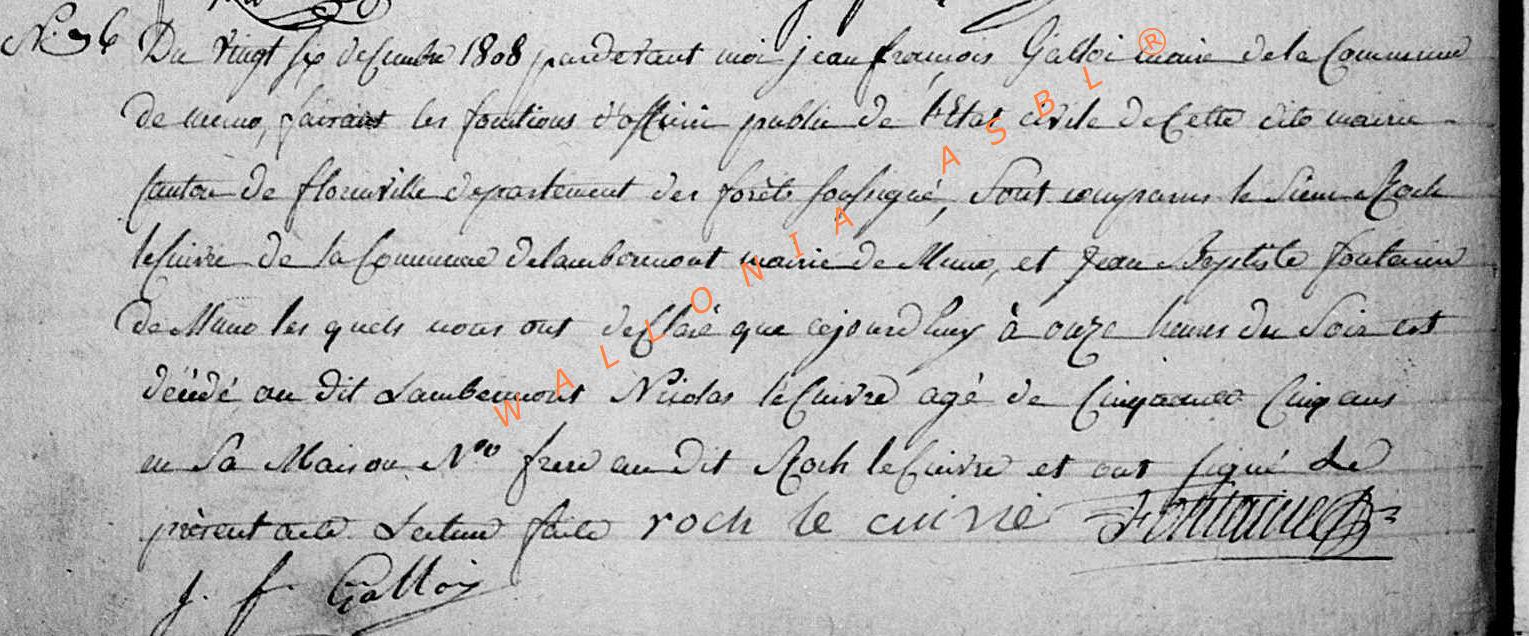 N.o 36 Du vingt six decembre 1808 pardevant moi jean françois Galloi maire de la Commune
de muno, faisant les fonctions d'officier public de l'Etat civile de Cette dite mairie
Canton de florenville departement des forêts soussigné, Sont comparus le Sieur Roch
leCuivre de la Commune delambermont mairie de Muno, et Jean Baptiste fontaine
de Muno les quels nous ont declaré que cejourdhuy à onze heures du Soir est
décédé au dit Lambermont Nicolas leCuivre agé de Cinquante Cinq ans
en Sa Maison N.o frere au dit Roch leCuivre et ont signé Le
présent acte Lecture faite roch le cuivre Fontaine
j. f Galloi
WALLONIA ASBL ®